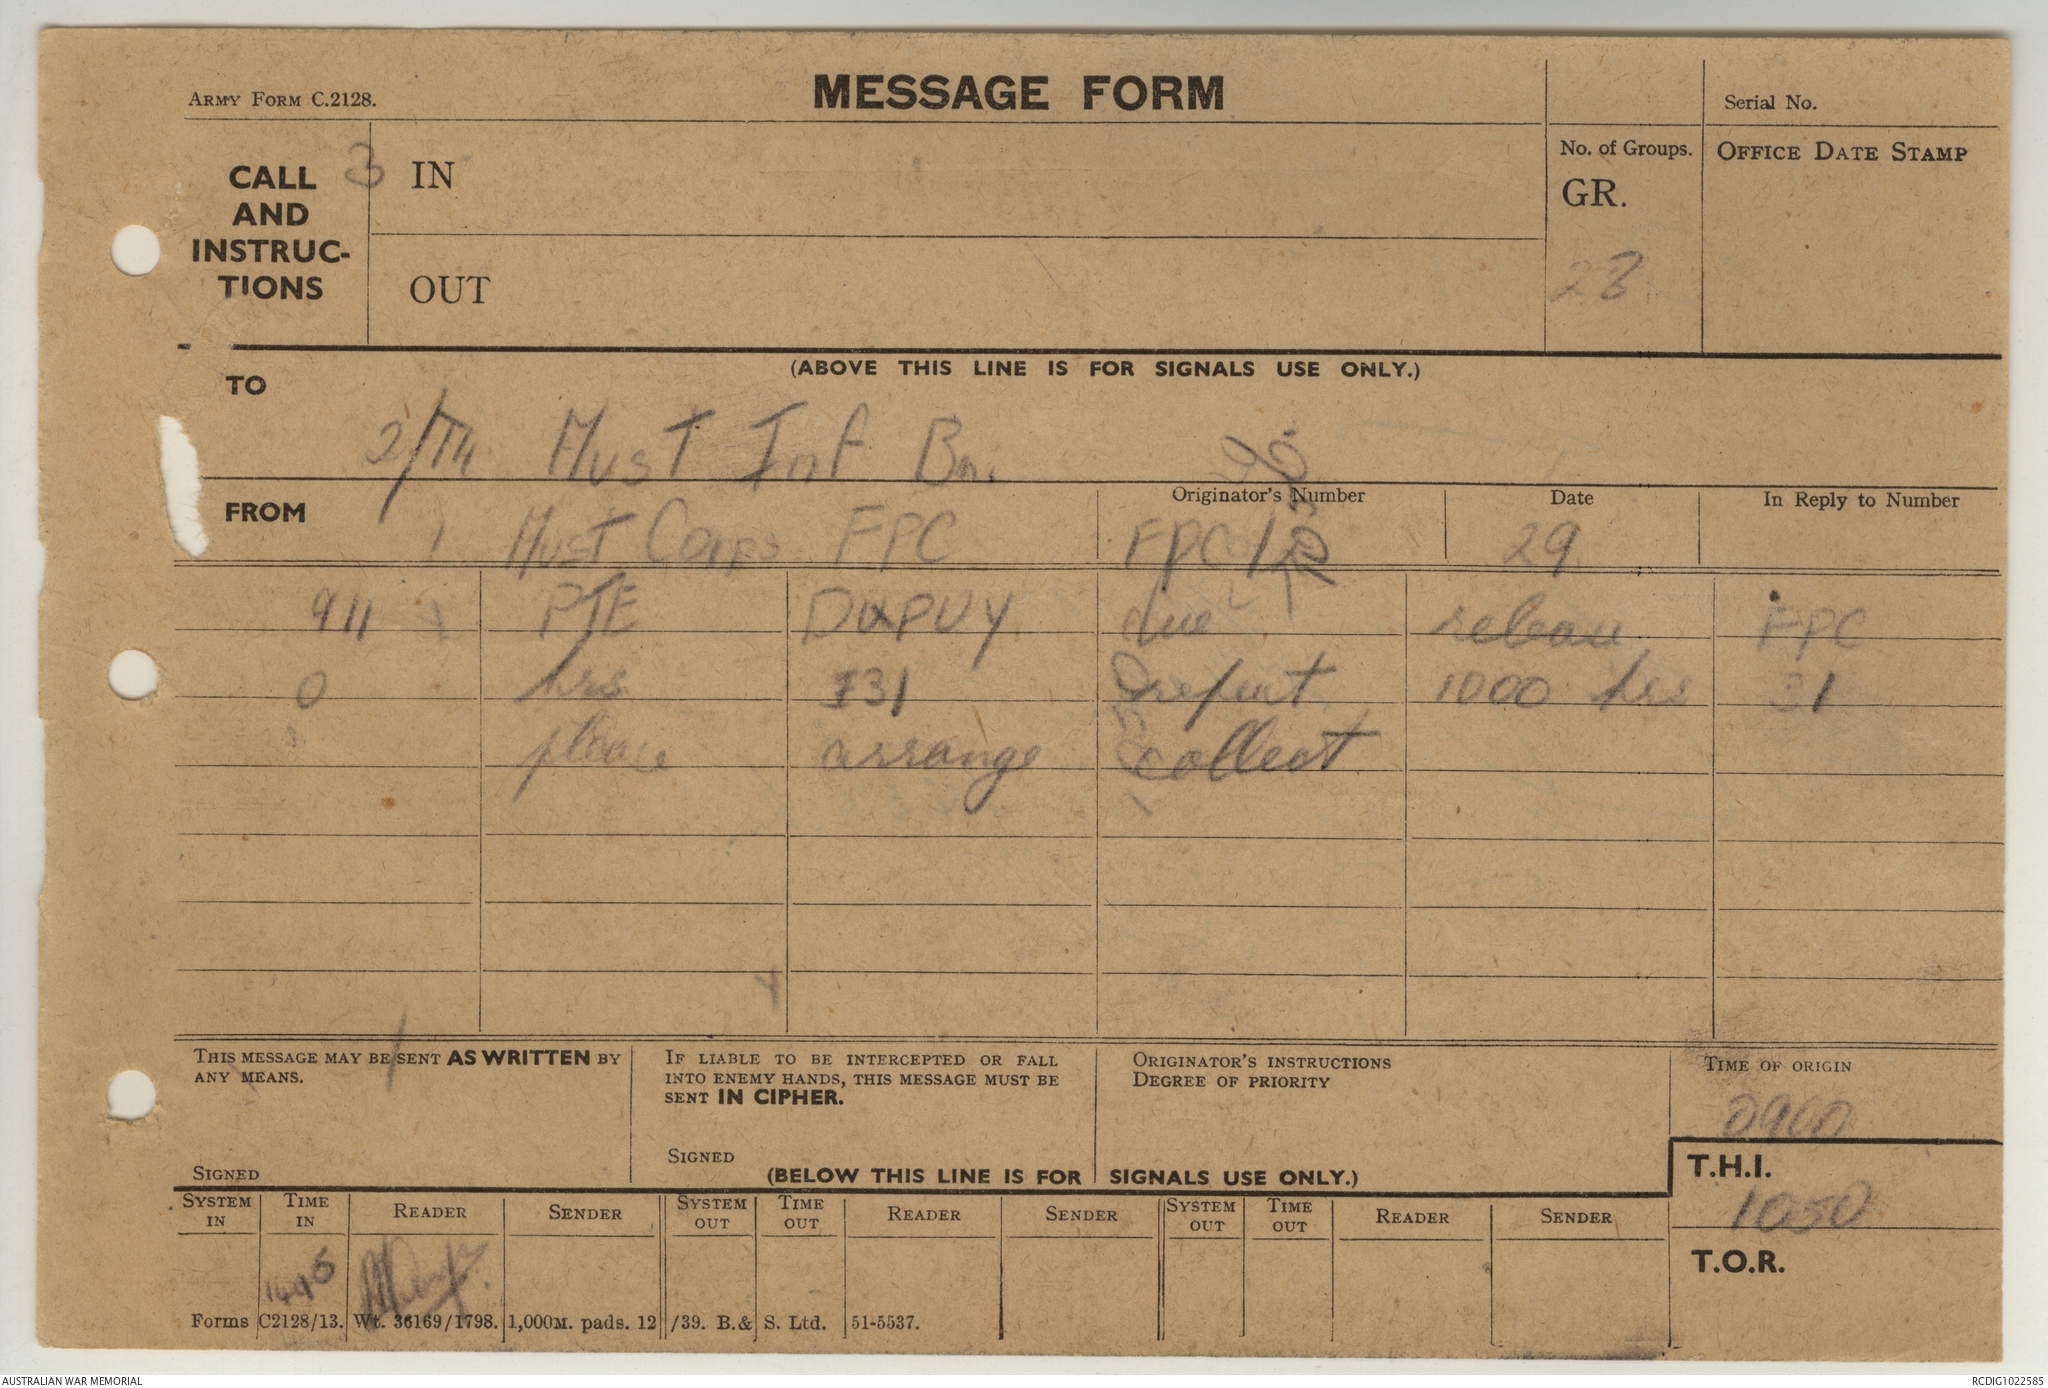 ARMY FORM C.2128.
MESSAGE FORM
Serial No.
CALL AND INSTRUC-TIONS
3
IN
OUT
No. of Groups.
GR.
23
OFFICE DATE STAMP
(ABOVE THIS LINE IS FOR SIGNALS USE ONLY.)
TO
Aust Inf Bn.
FROM
1 Aust Corps FPC
Originator's Number
FPC
Date
29
In Reply to Number
911 PTE DUPUY due release FPC
0 hrs 31 repeat 1000 hrs 31
please arrange collect
THIS MESSAGE MAY BE SENT AS WRITTEN BY ANY MEANS.
SIGNED
IF LIABLE TO BE INTERCEPTED OR FALL INTO ENEMY HANDS, THIS MESSAGE MUST BE SENT IN CIPHER.
SIGNED
ORIGINATOR'S INSTRUCTIONS
DEGREE OF PRIORITY
TIME OF ORIGIN
0900
(BELOW THIS LINE IS FOR SIGNALS USE ONLY.)
T.H.I.
1050
T.O.R.
SYSTEM IN
TIME IN
READER
SENDER
SYSTEM OUT
TIME OUT
READER
SENDER
SYSTEM OUT
TIME OUT
READER
SENDER
1445
Forms C2128/13. Wt. 36169/1798. 1,000M. pads. 12/39. B.& S. Ltd. 51-5537.
AUSTRALIAN WAR MEMORIAL
RCDIG1022585